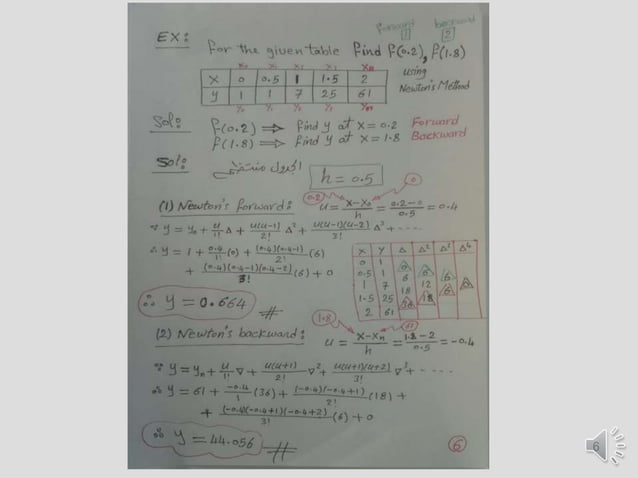 forward backward
[1] [2]
EX: For the given table find f(0.2), f(1.8)
x₀ x₁ x₂ x₃ x₄
X 0 0.5 1 1.5 2
y 1 1 7 25 61
y₀ y₁ y₂ y₃ y₄
using
Newton's Method
Sol: f(0.2) ⟹ find y at x = 0.2 Forward
f(1.8) ⟹ find y at x = 1.8 Backward
Sol: الجدول منتظم h = 0.5
0.2 0
(1) Newton's forward: u = (x-x₀)/h = (0.2-0)/0.5 = 0.4
∵ y = y₀ + u/1! Δ + u(u-1)/2! Δ² + u(u-1)(u-2)/3! Δ³ + ----
∴ y = 1 + 0.4/1! (0) + (0.4)(0.4-1)/2! (6)
+ (0.4)(0.4-1)(0.4-2)/3! (6) + 0
X Y Δ Δ² Δ³ Δ⁴
0 1
0
0.5 1 6
6 6
1 7 12 0
18 6
1.5 25 18
36
2 61
∴ y = 0.664 #
1.8 61
(2) Newton's backward: u = (x-xₙ)/h = (1.8-2)/0.5 = -0.4
∵ y = yₙ + u/1! ∇ + u(u+1)/2! ∇² + u(u+1)(u+2)/3! ∇³ + ----
∴ y = 61 + -0.4/1 (36) + (-0.4)(-0.4+1)/2! (18) +
+ (-0.4)(-0.4+1)(-0.4+2)/3! (6) + 0
∴ y = 44.056 #
6
6